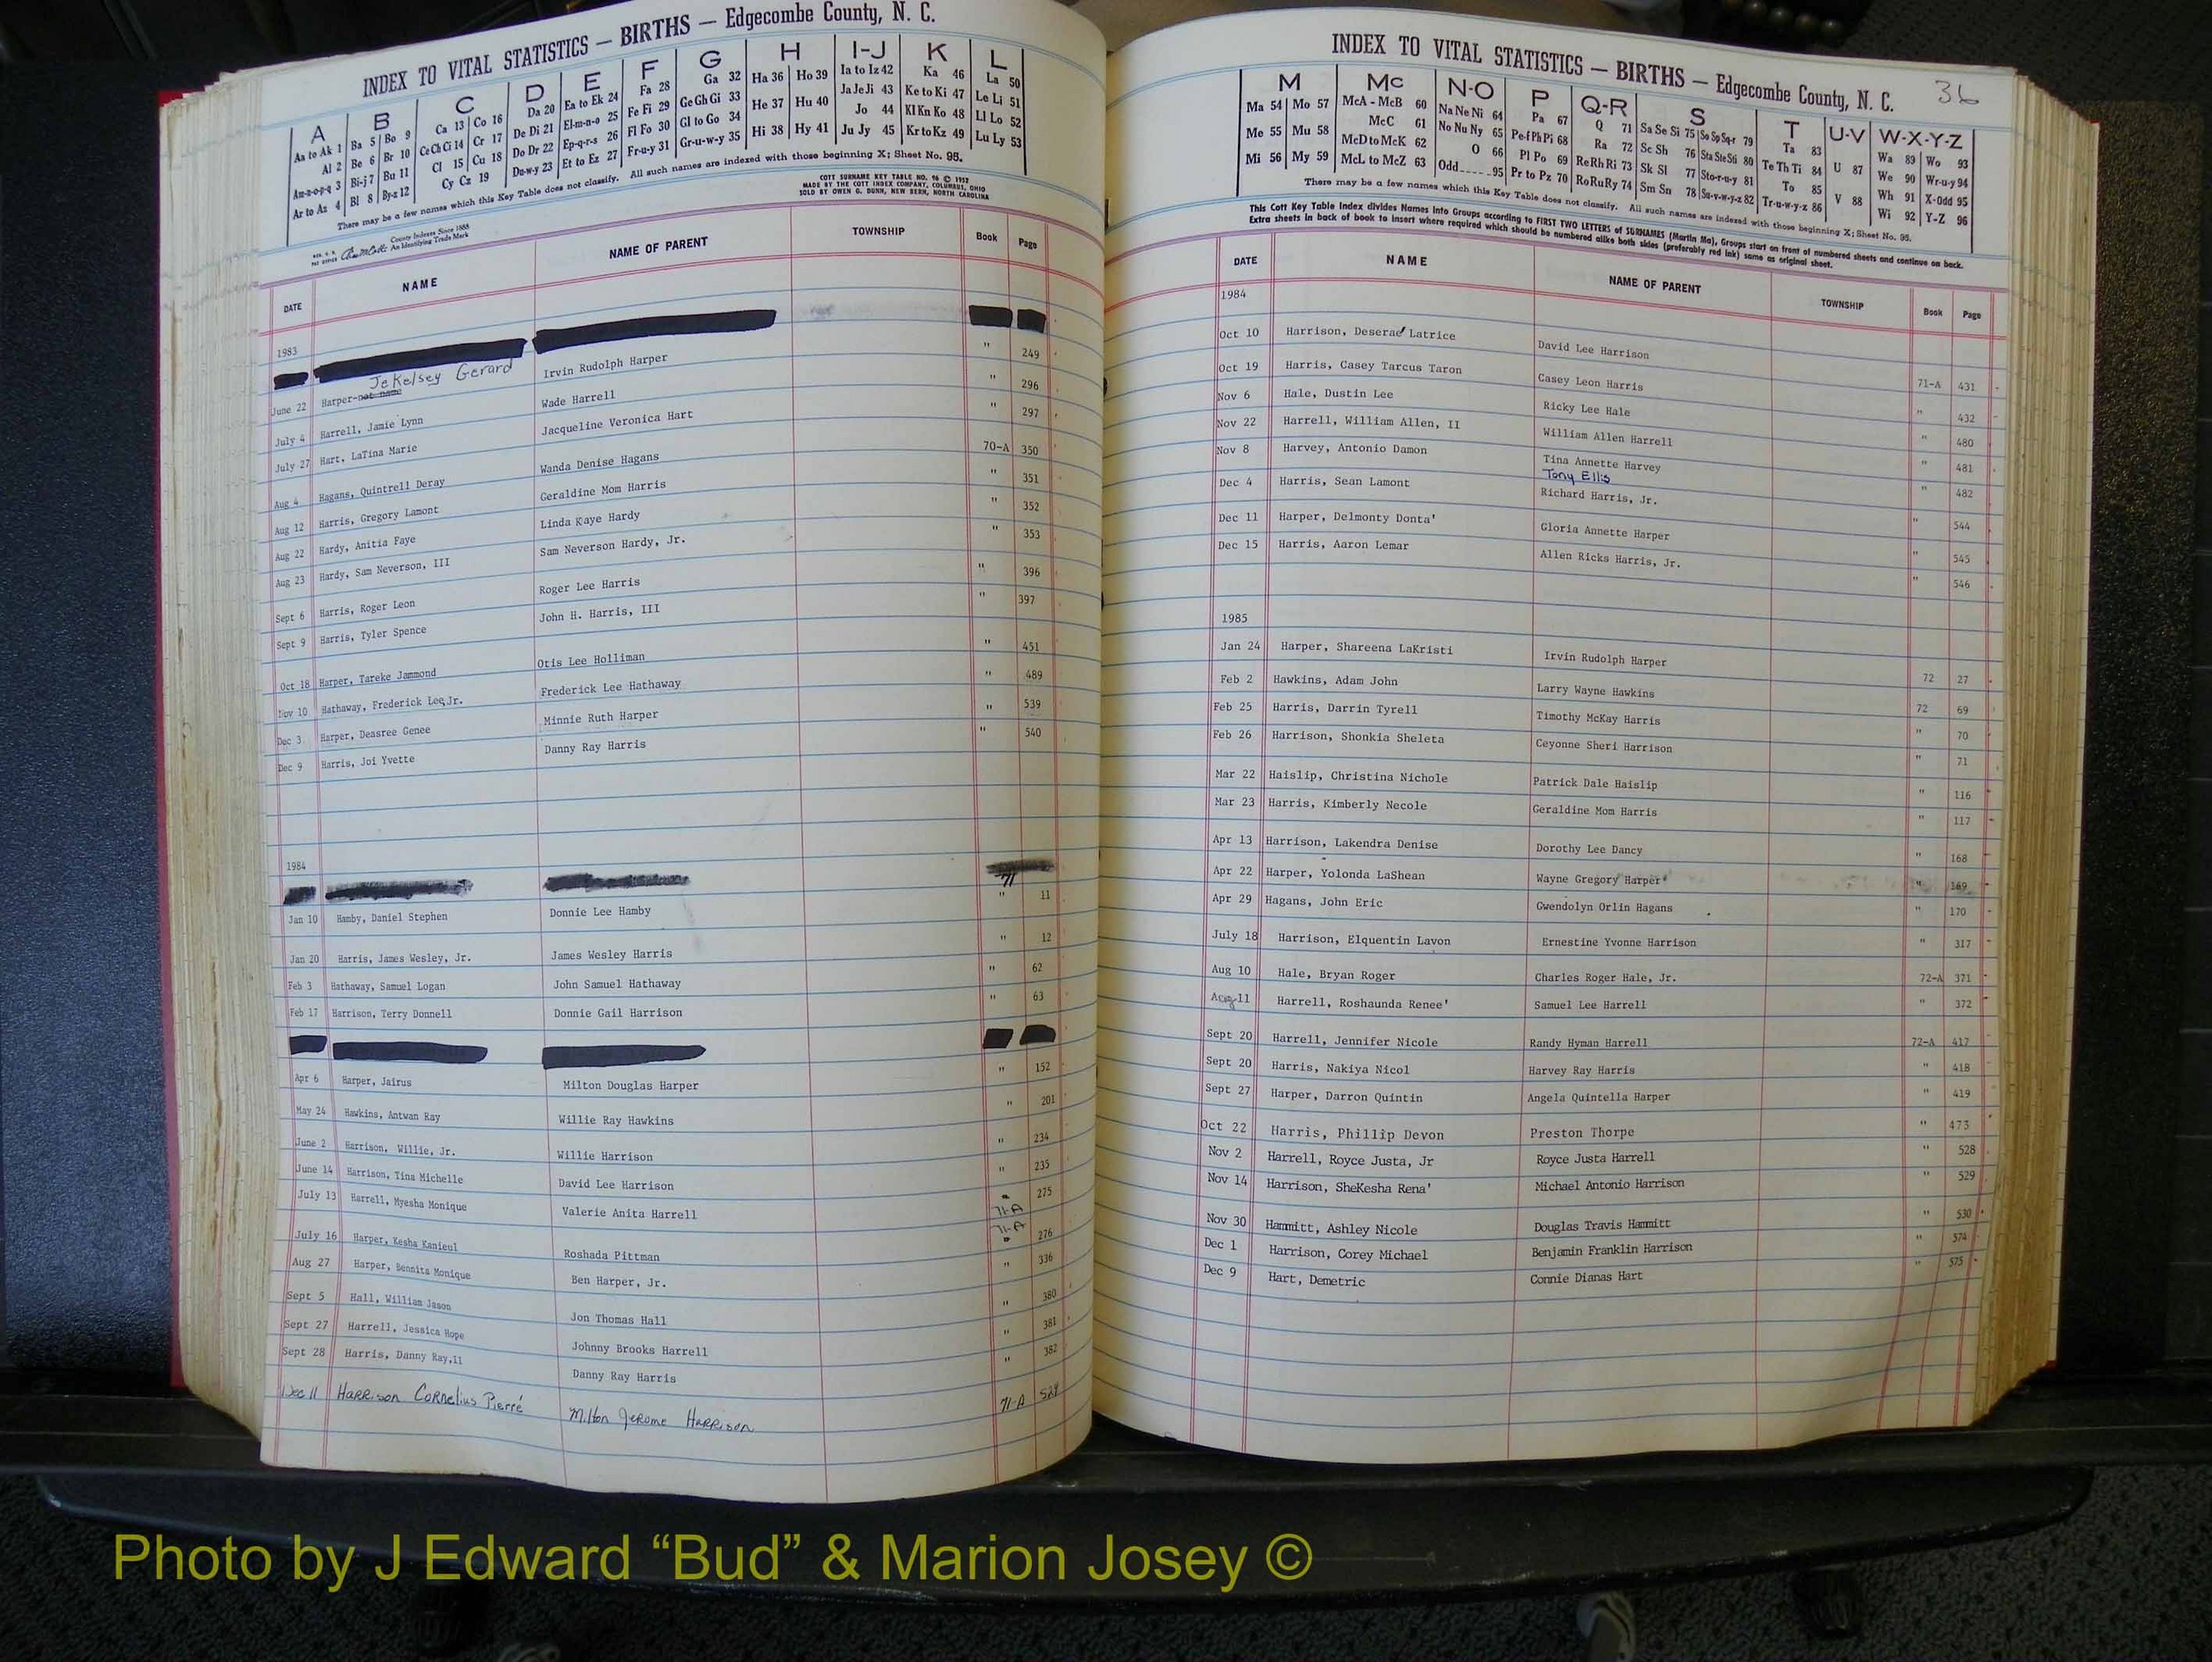 INDEX TO VITAL STATISTICS — BIRTHS — Edgecombe County, N. C.
A B C D E F G H I-J K L
Aa to Ak 1 Ba 5 Bo 9 Ca 13 Co 16 Da 20 Ea to Ek 24 Fa 28 Ga 32 Ha 36 Ho 39 Ia to Iz 42 Ka 46 La 50
Al 2 Be 6 Br 10 Ce Ch Ci 14 Cr 17 De Di 21 El-m-n-o 25 Fe Fi 29 Ge Gh Gi 33 He 37 Hu 40 Ja Je Ji 43 Ke to Ki 47 Le Li 51
Am-n-o-p-q 3 Bi-j 7 Bu 11 Cl 15 Cu 18 Do Dr 22 Ep-q-r-s 26 Fl Fo 30 Gl to Go 34 Hi 38 Hy 41 Jo 44 Kl Kn Ko 48 Ll Lo 52
Ar to Az 4 Bl 8 By-z 12 Cy Cz 19 Du-w-y 23 Et to Ez 27 Fr-u-y 31 Gr-u-w-y 35 Ju Jy 45 Kr to Kz 49 Lu Ly 53
There may be a few names which this Key Table does not classify. All such names are indexed with those beginning X; Sheet No. 95.
COTT SURNAME KEY TABLE NO. 96 © 1952
MADE BY THE COTT INDEX COMPANY, COLUMBUS, OHIO
SOLD BY OWEN G. DUNN, NEW BERN, NORTH CAROLINA
County Indexes Since 1888
An Identifying Trade Mark
DATE NAME NAME OF PARENT TOWNSHIP Book Page
1983
Jekelsey Gerard
June 22 Harper-not name Irvin Rudolph Harper " 249
July 4 Harrell, Jamie Lynn Wade Harrell " 296
July 27 Hart, LaTina Marie Jacqueline Veronica Hart " 297
Aug 4 Hagans, Quintrell Deray Wanda Denise Hagans 70-A 350
Aug 12 Harris, Gregory Lamont Geraldine Mom Harris " 351
Aug 22 Hardy, Anitia Faye Linda Kaye Hardy " 352
Aug 23 Hardy, Sam Neverson, III Sam Neverson Hardy, Jr. " 353
Sept 6 Harris, Roger Leon Roger Lee Harris " 396
Sept 9 Harris, Tyler Spence John H. Harris, III " 397
Oct 18 Harper, Tareke Jammond Otis Lee Holliman " 451
Nov 10 Hathaway, Frederick Lee, Jr. Frederick Lee Hathaway " 489
Dec 3 Harper, Deasree Genee Minnie Ruth Harper " 539
Dec 9 Harris, Joi Yvette Danny Ray Harris " 540
1984
71
Jan 10 Hamby, Daniel Stephen Donnie Lee Hamby " 11
Jan 20 Harris, James Wesley, Jr. James Wesley Harris " 12
Feb 3 Hathaway, Samuel Logan John Samuel Hathaway " 62
Feb 17 Harrison, Terry Donnell Donnie Gail Harrison " 63
Apr 6 Harper, Jairus Milton Douglas Harper " 152
May 24 Hawkins, Antwan Ray Willie Ray Hawkins " 201
June 2 Harrison, Willie, Jr. Willie Harrison " 234
June 14 Harrison, Tina Michelle David Lee Harrison " 235
July 13 Harrell, Myesha Monique Valerie Anita Harrell 71-A 275
July 16 Harper, Kesha Kanieul Roshada Pittman 71-A 276
Aug 27 Harper, Bennita Monique Ben Harper, Jr. " 336
Sept 5 Hall, William Jason Jon Thomas Hall " 380
Sept 27 Harrell, Jessica Hope Johnny Brooks Harrell " 381
Sept 28 Harris, Danny Ray,11 Danny Ray Harris " 382
Dec 11 Harrison Cornelius Pierré Milton Jerome Harrison 71-A
INDEX TO VITAL STATISTICS — BIRTHS — Edgecombe County, N. C. 36
M Mc N-O P Q-R S T U-V W-X-Y-Z
Ma 54 Mo 57 McA - McB 60 Na Ne Ni 64 Pa 67 Q 71 Sa Se Si 75 So Sp Sq-r 79 Ta 83 U 87 Wa 89 Wo 93
Me 55 Mu 58 McC 61 No Nu Ny 65 Pe-f Ph Pi 68 Ra 72 Sc Sh 76 Sta Ste Sti 80 Te Th Ti 84 V 88 We 90 Wr-u-y 94
Mi 56 My 59 McD to McK 62 O 66 Pl Po 69 Re Rh Ri 73 Sk Sl 77 Sto-r-u-y 81 To 85 Wh 91 X-Odd 95
McL to McZ 63 Odd 95 Pr to Pz 70 Ro Ru Ry 74 Sm Sn 78 Su-v-w-y-z 82 Tr-u-w-y-z 86 Wi 92 Y-Z 96
There may be a few names which this Key Table does not classify. All such names are indexed with those beginning X; Sheet No. 95.
This Cott Key Table Index divides Names into Groups according to FIRST TWO LETTERS of SURNAMES (Martin Ma), Groups start on front of numbered sheets and continue on back.
Extra sheets in back of book to insert where required which should be numbered alike both sides (preferably red ink) same as original sheet.
DATE NAME NAME OF PARENT TOWNSHIP Book Page
1984
Oct 10 Harrison, Deserae' Latrice David Lee Harrison 71-A 431
Oct 19 Harris, Casey Tarcus Taron Casey Leon Harris " 432
Nov 6 Hale, Dustin Lee Ricky Lee Hale " 480
Nov 22 Harrell, William Allen, II William Allen Harrell " 481
Nov 8 Harvey, Antonio Damon Tina Annette Harvey " 482
Tony Ellis
Dec 4 Harris, Sean Lamont Richard Harris, Jr. " 544
Dec 11 Harper, Delmonty Donta' Gloria Annette Harper " 545
Dec 15 Harris, Aaron Lemar Allen Ricks Harris, Jr. " 546
1985
Jan 24 Harper, Shareena LaKristi Irvin Rudolph Harper 72 27
Feb 2 Hawkins, Adam John Larry Wayne Hawkins 72 69
Feb 25 Harris, Darrin Tyrell Timothy McKay Harris " 70
Feb 26 Harrison, Shonkia Sheleta Ceyonne Sheri Harrison " 71
Mar 22 Haislip, Christina Nichole Patrick Dale Haislip " 116
Mar 23 Harris, Kimberly Necole Geraldine Mom Harris " 117
Apr 13 Harrison, Lakendra Denise Dorothy Lee Dancy " 168
Apr 22 Harper, Yolonda LaShean Wayne Gregory Harper " 169
Apr 29 Hagans, John Eric Gwendolyn Orlin Hagans " 170
July 18 Harrison, Elquentin Lavon Ernestine Yvonne Harrison " 317
Aug 10 Hale, Bryan Roger Charles Roger Hale, Jr. 72-A 371
Aug 11 Harrell, Roshaunda Renee' Samuel Lee Harrell " 372
Sept 20 Harrell, Jennifer Nicole Randy Hyman Harrell 72-A 417
Sept 20 Harris, Nakiya Nicol Harvey Ray Harris " 418
Sept 27 Harper, Darron Quintin Angela Quintella Harper " 419
Oct 22 Harris, Phillip Devon Preston Thorpe " 473
Nov 2 Harrell, Royce Justa, Jr Royce Justa Harrell " 528
Nov 14 Harrison, SheKesha Rena' Michael Antonio Harrison " 529
Nov 30 Hammitt, Ashley Nicole Douglas Travis Hammitt " 530
Dec 1 Harrison, Corey Michael Benjamin Franklin Harrison " 574
Dec 9 Hart, Demetric Connie Dianas Hart " 575
Photo by J Edward “Bud” & Marion Josey ©